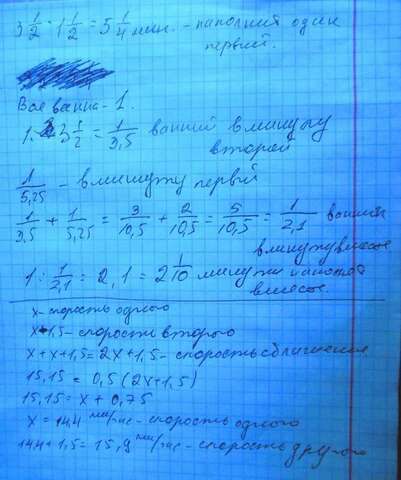 3 1/2 · 1 1/2 = 5 1/4 мин. - наполнит один
первый.
Вся ванна - 1.
1 : 3 1/2 = 1/3,5 ванны в минуту
второй
1/5,25 - в минуту первый
1/3,5 + 1/5,25 = 3/10,5 + 2/10,5 = 5/10,5 = 1/2,1 ванны
в минуту вместе
1 : 1/2,1 = 2,1 = 2 1/10 минуты
вместе.
x - скорость одного
x + 1,5 - скорость второго
x + x + 1,5 = 2x + 1,5 - скорость сближения
15,15 = 0,5 (2x + 1,5)
15,15 = x + 0,75
x = 14,4 км/час - скорость одного
14,4 + 1,5 = 15,9 км/час - скорость другого